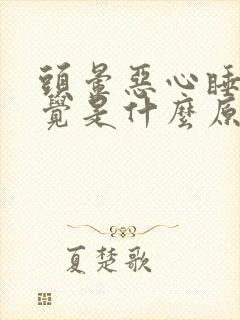 頭暈惡心睡
覺是什麼原
夏楚歌